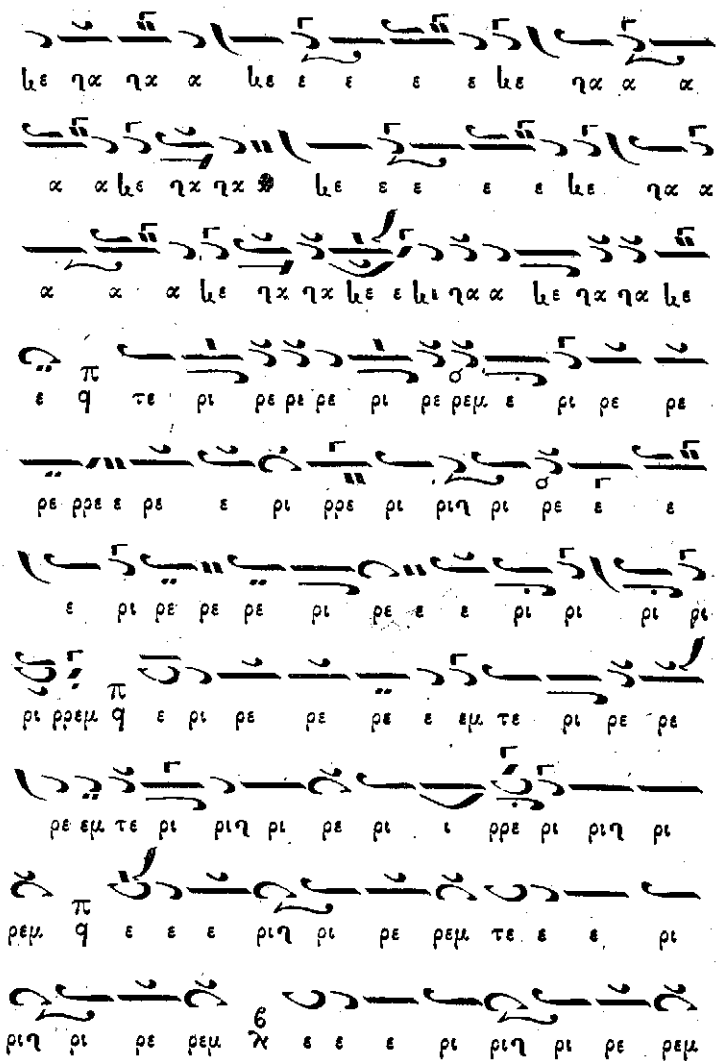 κε να να α κε ε ε ε ε κε να α α
α α κε να να κε ε ε ε ε κε να α
α α α κε να να κε ε κι να α κε να να κε
ε π q τε ρι ρε ρε ρε ρι ρε ρεμ ε ρι ρε ρε
ρε ρρε ε ρε ε ρι ρρε ρι ριν ρι ρε ε ε
ε ρι ρε ρε ρε ρι ρε ε ε ρι ρι ρι ρι
ρι ρρεμ π q ε ρι ρε ρε ρε ε εμ τε ρι ρε ρε
ρε εμ τε ρι ριν ρι ρε ρι ι ρρε ρι ριν ρι
ρεμ π q ε ε ε ριν ρι ρε ρεμ τε ε ε ρι
ριν ρι ρε ρεμ ε ε ε ρι ριν ρι ρε ρεμ